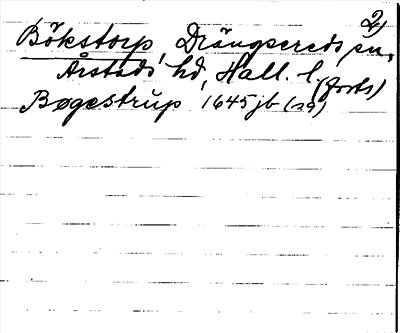 2)
Bökstorp, Drängsereds sn,
Årstads hd, Hall. l. (forts)
Bøgestrup 1645 jb (sg)